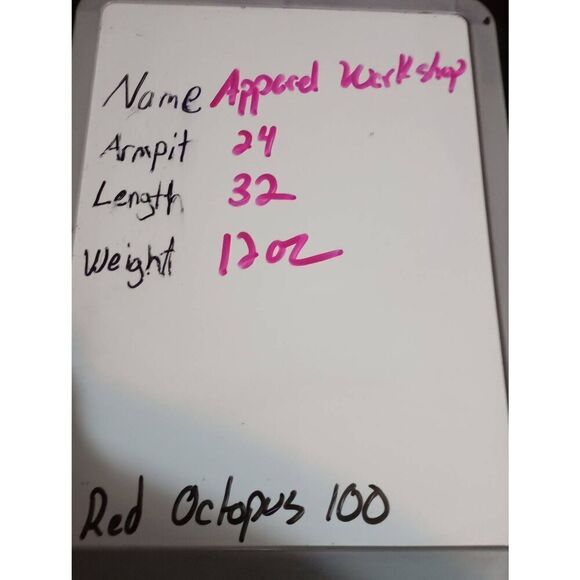 Name Apparel Workshop
Armpit 24
Length 32
Weight 12oz
Red Octopus 100